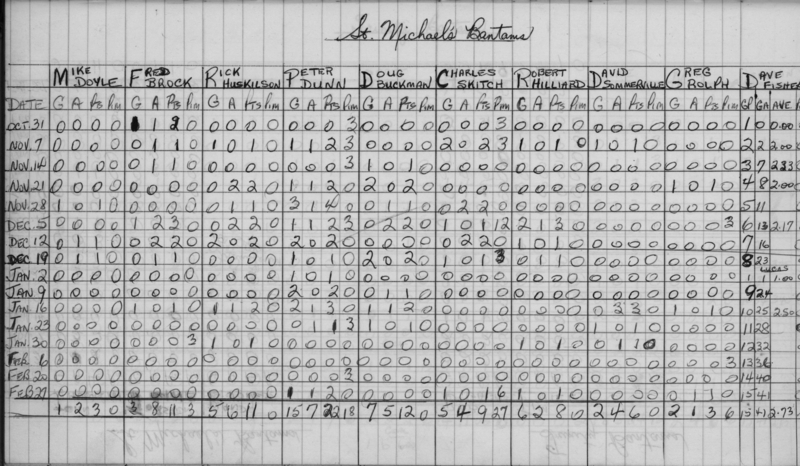 St. Michael's Bantams
MIKE DOYLE FRED BROCK RICK HUSKILSON PETER DUNN DOUG BUCKMAN CHARLES SKITCH ROBERT HILLIARD DAVID SOMMERVILLE GREG ROLPH DAVE FISHER
DATE G A Pts Pim G A Pts Pim G A Pts Pim G A Pts Pim G A Pts Pim G A Pts Pim G A Pts Pim G A Pts Pim G A Pts Pim GP GA AVE
OCT. 31 0 0 0 0 1 1 2 0 0 0 0 0 0 0 0 3 0 0 0 0 0 0 0 3 0 0 0 0 0 0 0 0 0 0 0 0 1 0 0.00
NOV. 7 0 0 0 0 0 1 1 0 1 0 1 0 1 1 2 3 0 0 0 0 2 0 2 3 1 0 1 0 1 0 1 0 0 0 0 0 2 2 2.00
NOV. 14 0 0 0 0 0 1 1 0 0 0 0 0 0 0 0 3 1 0 1 0 0 0 0 0 0 0 0 0 0 0 0 0 0 0 0 0 3 7 2.33
NOV. 21 0 0 0 0 0 0 0 0 0 2 2 0 1 1 2 0 2 0 2 0 0 0 0 0 0 0 0 0 0 0 0 0 1 0 1 0 4 8 2.00
NOV. 28 1 0 1 0 0 0 0 0 0 1 1 0 3 1 4 0 0 1 1 0 0 2 2 0 0 0 0 0 0 0 0 0 0 0 0 0 5 11
DEC. 5 0 0 0 0 1 2 3 0 0 2 2 0 1 1 2 3 0 2 2 0 1 0 1 12 2 1 3 0 0 0 0 0 0 0 0 3 6 13 2.17
DEC. 12 0 1 1 0 0 2 2 0 2 0 2 0 2 0 2 0 0 0 0 0 0 2 2 0 1 0 1 0 0 0 0 0 0 0 0 0 7 16
DEC. 19 0 1 1 0 0 1 1 0 0 0 0 0 1 0 1 0 2 0 2 0 1 0 1 3 0 1 1 0 0 0 0 0 0 0 0 0 8 23
JAN. 2 0 0 0 0 0 0 0 0 0 0 0 0 1 0 1 0 0 0 0 0 0 0 0 0 0 0 0 0 0 0 0 0 0 0 0 0 1 1 LUCAS 1.00
JAN 9 0 0 0 0 0 0 0 0 0 0 0 0 2 0 2 0 0 1 1 0 0 0 0 0 0 0 0 0 0 0 0 0 0 0 0 0 9 24
JAN 16 0 0 0 0 1 0 1 0 1 1 2 0 2 1 3 0 1 1 2 0 0 0 0 0 0 0 0 0 0 3 3 0 1 0 1 0 10 25 2.50
JAN. 23 0 0 0 0 0 0 0 0 0 0 0 0 0 1 1 3 1 0 1 0 0 0 0 0 0 0 0 0 1 0 1 0 0 0 0 0 11 28
JAN. 30 0 0 0 0 0 0 0 3 1 0 1 0 0 0 0 0 0 0 0 0 0 0 0 0 1 0 1 0 0 1 1 0 0 0 0 0 12 32
FEB. 6 0 0 0 0 0 0 0 0 0 0 0 0 0 0 0 0 0 0 0 0 0 0 0 0 0 0 0 0 0 0 0 0 0 0 0 3 13 36
FEB 20 0 0 0 0 0 0 0 0 0 0 0 0 0 0 0 3 0 0 0 0 0 0 0 0 0 0 0 0 0 0 0 0 0 0 0 0 14 40
FEB 27 0 0 0 0 0 0 0 0 0 0 0 0 1 1 2 0 0 0 0 0 1 0 1 6 1 0 1 0 0 0 0 0 0 1 1 0 15 41
1 2 3 0 3 8 11 3 5 6 11 0 15 7 22 18 7 5 12 0 5 4 9 27 6 2 8 0 2 4 6 0 2 1 3 6 15 41 2.73